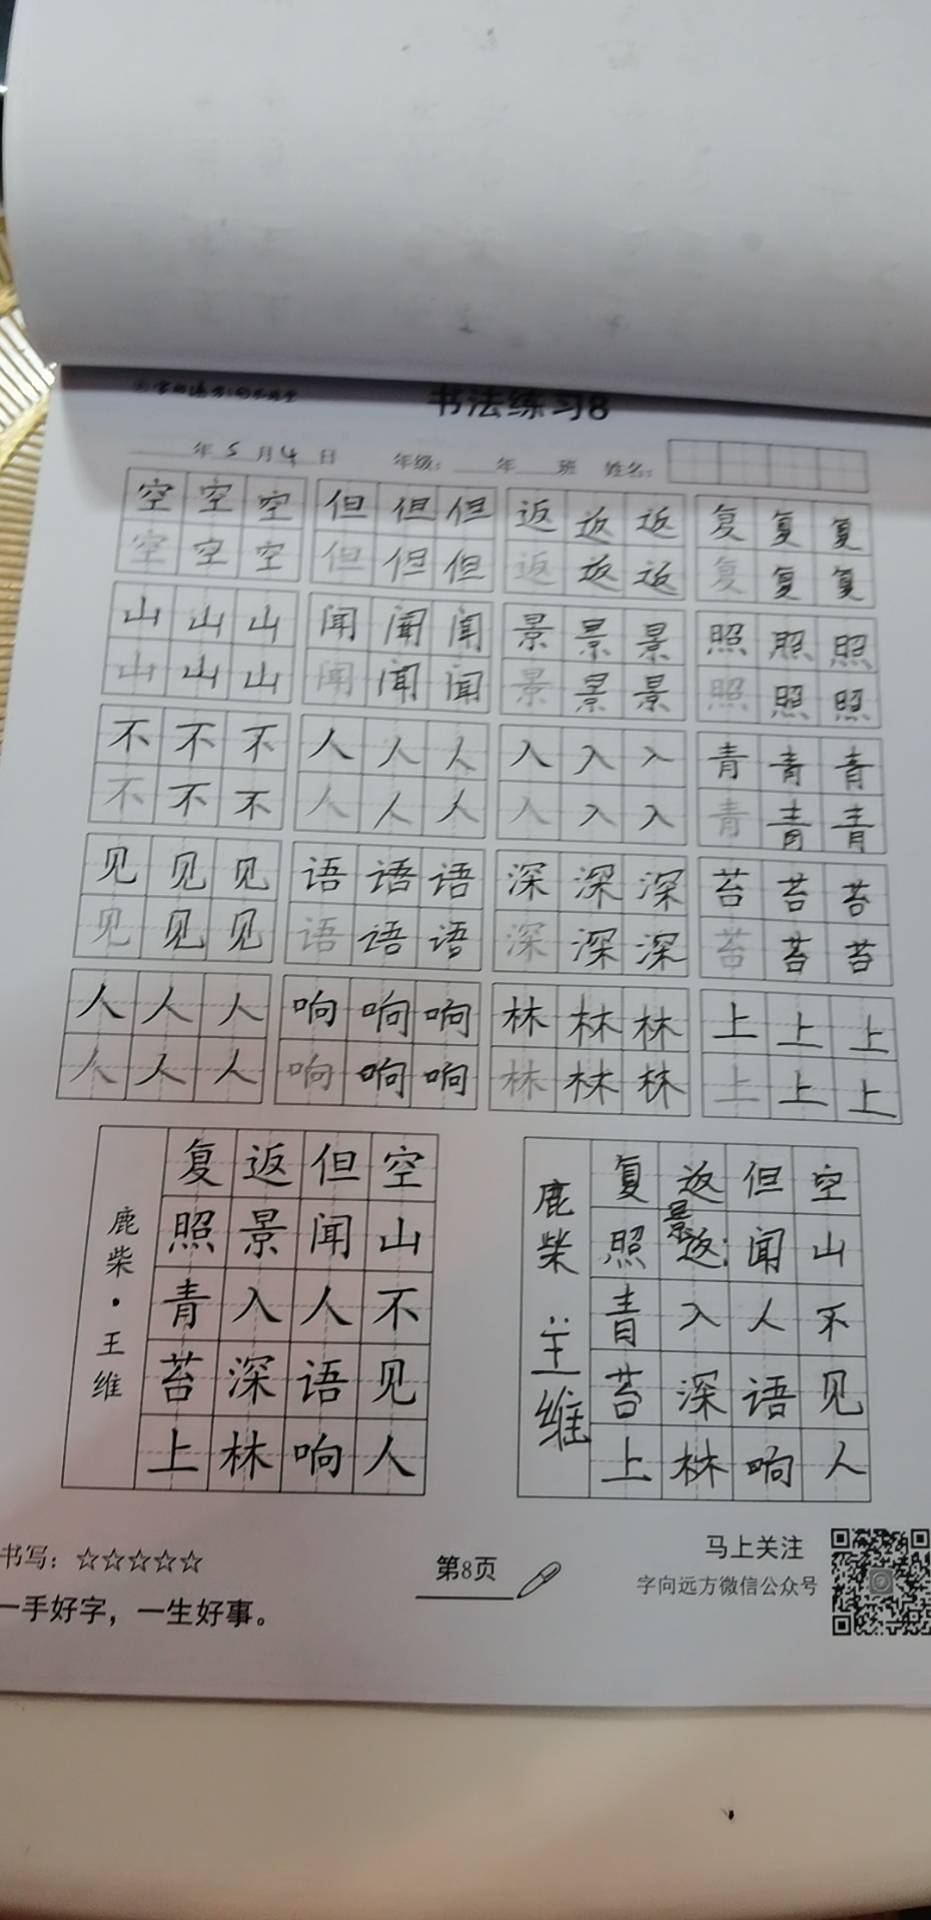 书法练习8
年 5 月 4 日 年级： 年 班 姓名：
空 空 空 但 但 但 返 返 返 复 复 复
空 空 空 但 但 但 返 返 返 复 复 复
山 山 山 闻 闻 闻 景 景 景 照 照 照
山 山 山 闻 闻 闻 景 景 景 照 照 照
不 不 不 人 人 人 入 入 入 青 青 青
不 不 不 人 人 人 入 入 入 青 青 青
见 见 见 语 语 语 深 深 深 苔 苔 苔
见 见 见 语 语 语 深 深 深 苔 苔 苔
人 人 人 响 响 响 林 林 林 上 上 上
人 人 人 响 响 响 林 林 林 上 上 上
空山不见人
但闻人语响
返景入深林
复照青苔上
鹿柴·王维
空山不见人
但闻人语响
返景入深林
复照青苔上
鹿柴 王维
书写：☆☆☆☆☆
一手好字，一生好事。
第8页
马上关注
字向远方微信公众号